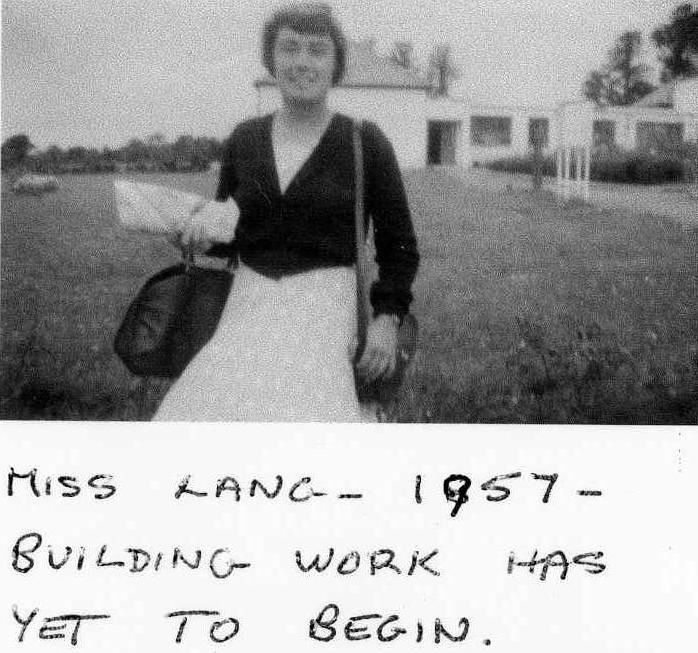 MISS LANG - 1957 -
BUILDING WORK HAS
YET TO BEGIN.